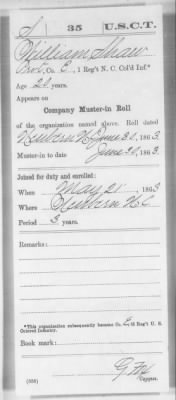 S 35 U.S.C.T.
William Shaw
Prvt, Co. E, 1 Reg't N. C. Col'd Inf.*
Age 26 years.
Appears on
Company Muster-in Roll
of the organization named above. Roll dated
Newbern N.C. June 30, 1863.
Muster-in to date June 30, 1863.
Joined for duty and enrolled:
When May 21, 1863
Where Newbern N.C.
Period 3 years.
Remarks:
*This organization subsequently became Co. E, 35 Reg't U. S.
Colored Infantry.
Book mark:
(356) Copyist.